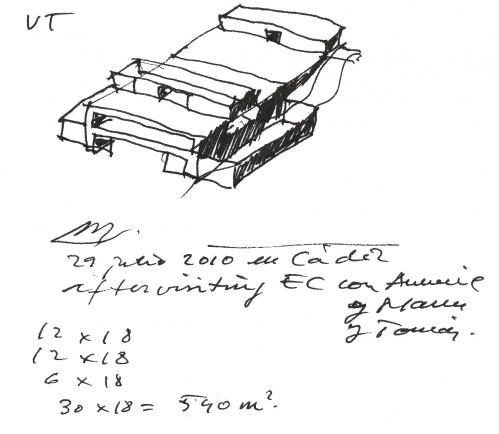 VT
29 julio 2010 en Cádiz
after visiting EC con
y
y Tomás.
12 x 18
12 x 18
6 x 18
30 x 18 = 540 m².